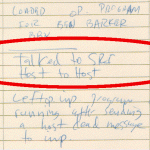 LOADED OP PROGRAM
FOR BEN BARKER
BBN
Talked to SRI
Host to Host
Left op imp program
running after sending
a host dead message
to imp